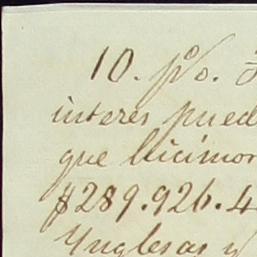 10. p%.
interes pued
que hicimos
$289.926.4
Ynglesas y